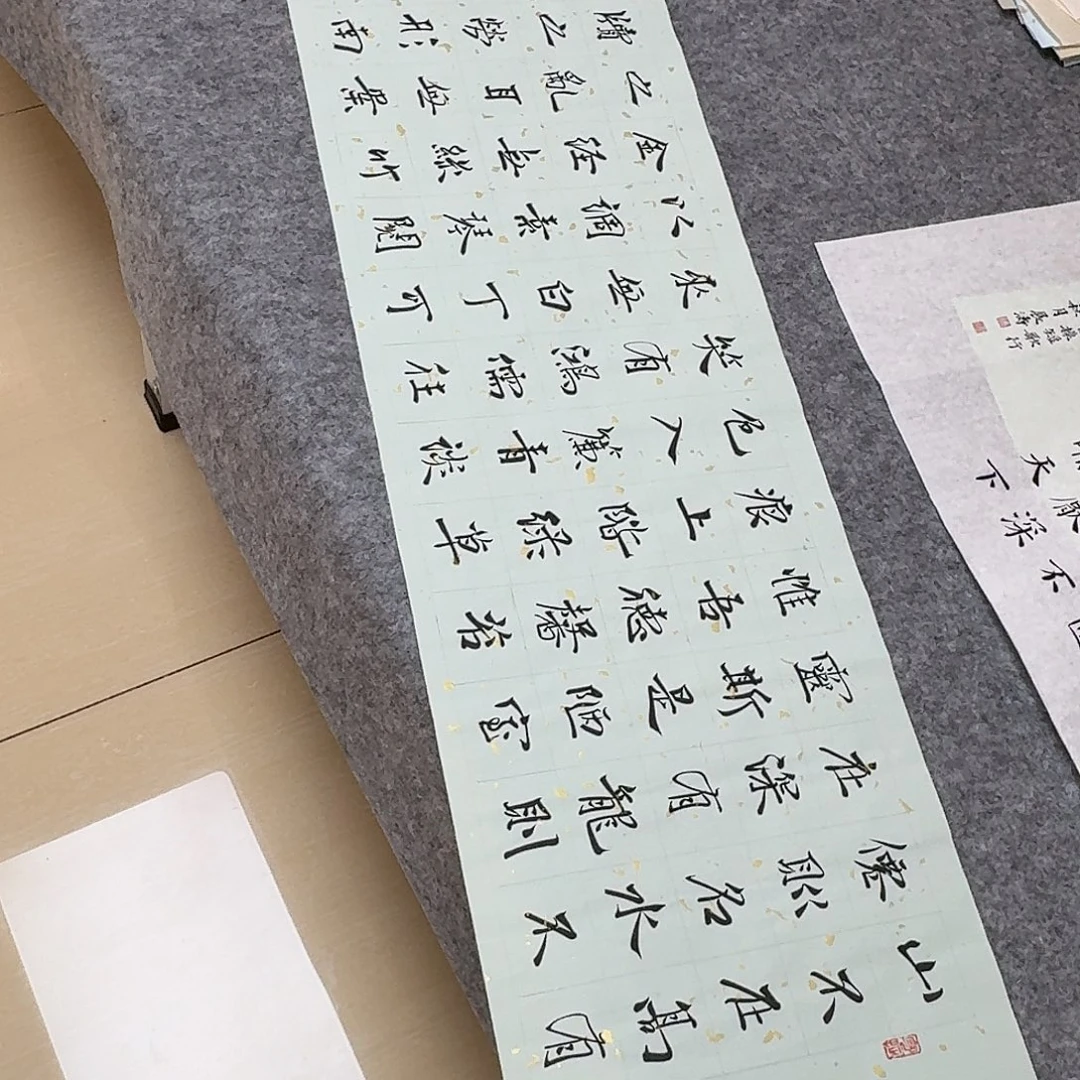 山不在高有
僊則名水不
在深有龍則
靈斯是陋室
惟吾德馨苔
痕上階綠草
色入簾青談
笑有鴻儒往
來無白丁可
以調素琴閱
金經無絲竹
之亂耳無案
牘之勞形南
不深
天下